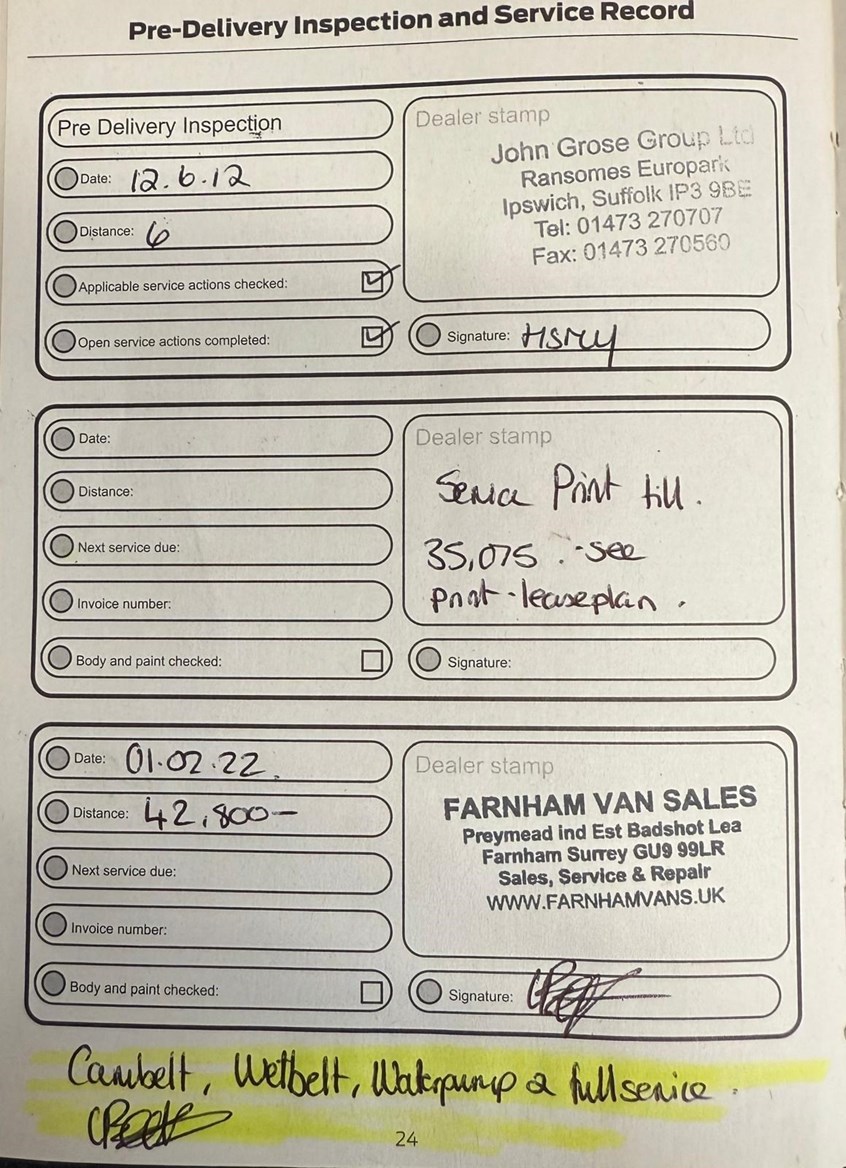 Pre-Delivery Inspection and Service Record
Pre Delivery Inspection
Date: 12.6.12
Distance: 6
Applicable service actions checked:
Open service actions completed:
Dealer stamp
John Grose Group Ltd
Ransomes Europark
Ipswich, Suffolk IP3 9BE
Tel: 01473 270707
Fax: 01473 270560
Signature:
Date:
Distance:
Next service due:
Invoice number:
Body and paint checked:
Dealer stamp
Service Print till.
35,075 .-see
print-leaseplan.
Signature:
Date: 01.02.22.
Distance: 42,800-
Next service due:
Invoice number:
Body and paint checked:
Dealer stamp
FARNHAM VAN SALES
Preymead ind Est Badshot Lea
Farnham Surrey GU9 99LR
Sales, Service & Repair
WWW.FARNHAMVANS.UK
Signature:
Cambelt, Wetbelt, Waterpump & full service.
24